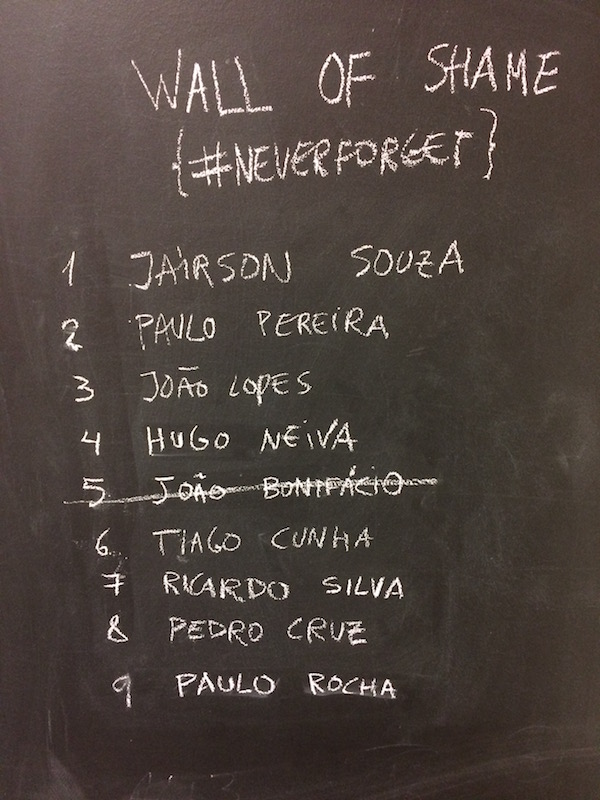 WALL OF SHAME
{#NEVERFORGET}
1 JAIRSON SOUZA
2 PAULO PEREIRA
3 JOÃO LOPES
4 HUGO NEIVA
5 JOÃO BONIFÁCIO
6 TIAGO CUNHA
7 RICARDO SILVA
8 PEDRO CRUZ
9 PAULO ROCHA